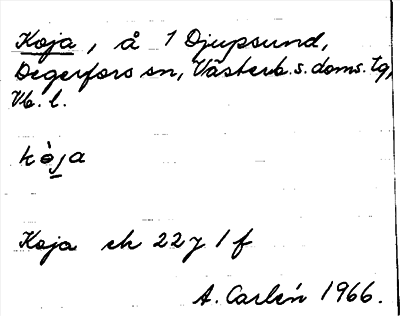 Koja, å 1 Djupsund,
Degerfors sn, Västerb. s. doms. tg,
Vb. l.
kò̱ja
Koja ek 22 7 1 f
A. Carlén 1966.